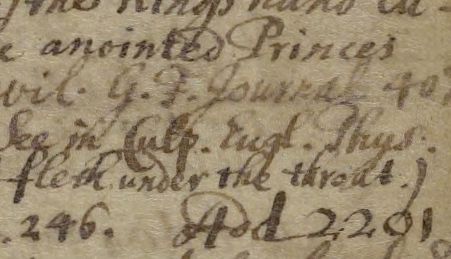 the Kings hand
anointed Princes
vil. G. F. Journal 40
See in Culp. Engl. Phys.
flesh under the throat.)
. 246. Add 2201